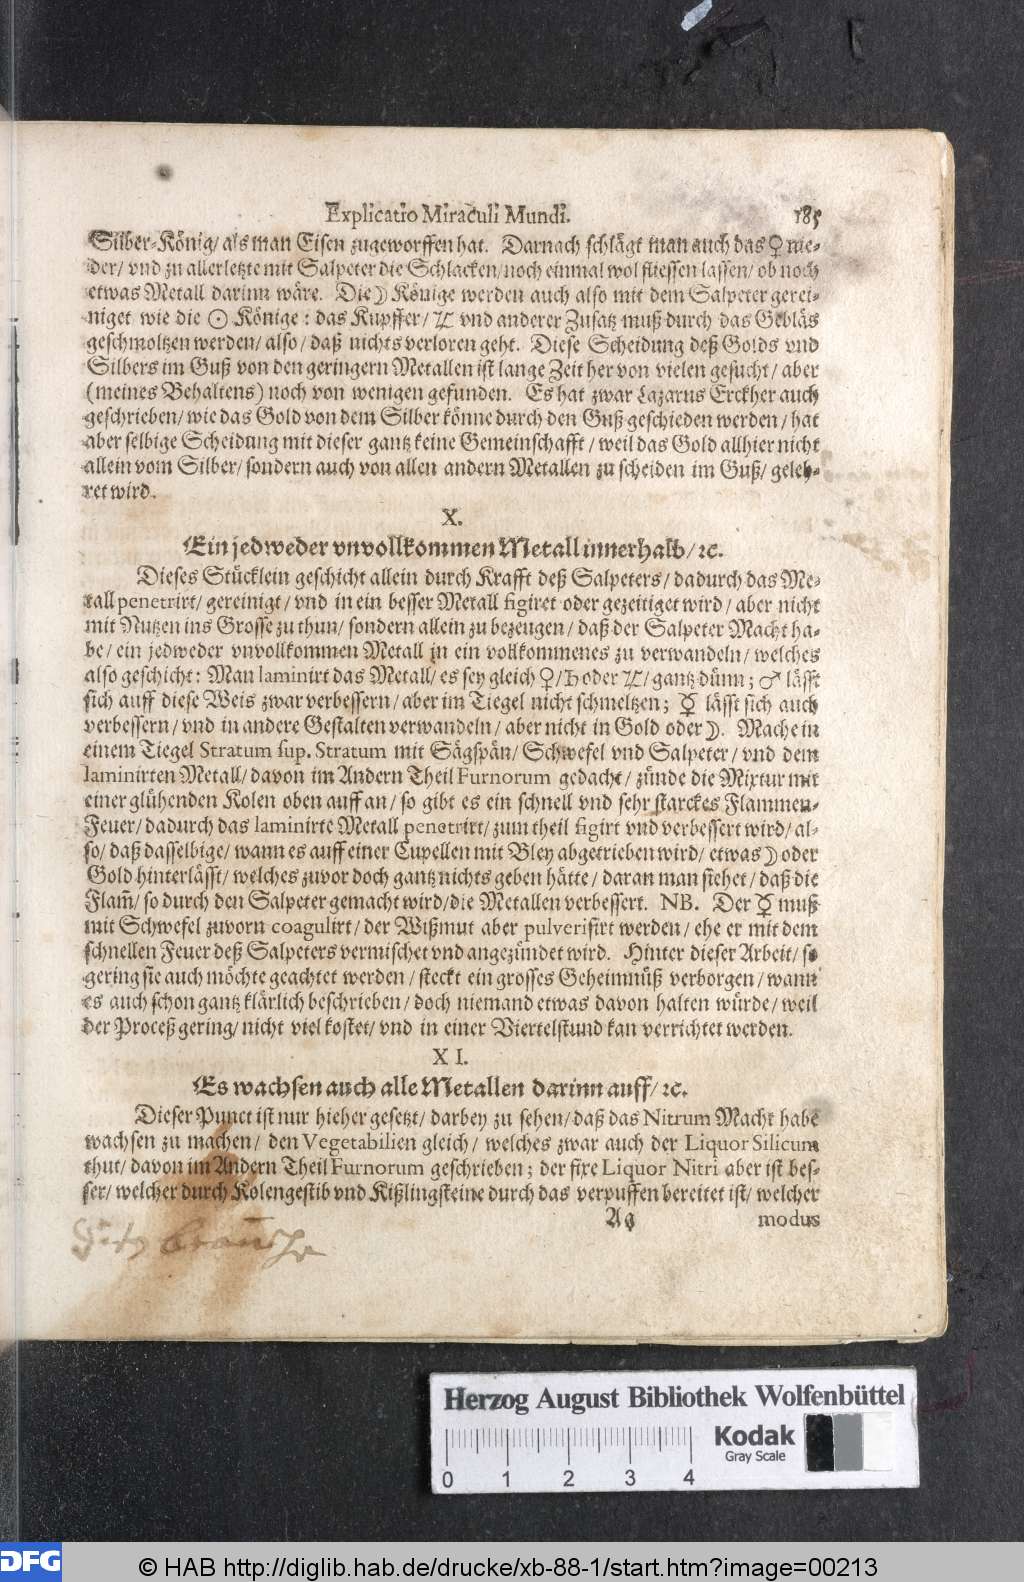 Explicatio Miraculi Mundi. 185
Silber-König/ als man Eisen zugeworffen hat. Darnach schlägt man auch das ♀ nie-
der/ vnd zu allerletzte mit Salpeter die Schlacken/ noch einmal wol fliessen lassen/ ob noch
etwas Metall darinn wäre. Die ☽ Könige werden auch also mit dem Salpeter gerei-
niget wie die ☉ Könige: das Kupffer/ ♃ vnd anderer Zusatz muß durch das Gebläs
geschmoltzen werden/ also/ daß nichts verloren geht. Diese Scheidung deß Golds vnd
Silbers im Guß von den geringern Metallen ist lange Zeit her von vielen gesucht/ aber
(meines Behaltens) noch von wenigen gefunden. Es hat zwar Lazarus Erckher auch
geschrieben/ wie das Gold von dem Silber könne durch den Guß geschieden werden/ hat
aber selbige Scheidung mit dieser gantz keine Gemeinschafft/ weil das Gold allhier nicht
allein vom Silber/ sondern auch von allen andern Metallen zu scheiden im Guß/ geleh-
ret wird.
X.
Ein jedweder vnvollkommen Metall innerhalb/ ꝛc.
Dieses Stücklein geschicht allein durch Krafft deß Salpeters/ dadurch das Me-
tall penetrirt/ gereinigt/ vnd in ein besser Metall figiret oder gezeitiget wird/ aber nicht
mit Nutzen ins Grosse zu thun/ sondern allein zu bezeugen/ daß der Salpeter Macht ha-
be/ ein jedweder vnvollkommen Metall in ein vollkommenes zu verwandeln/ welches
also geschicht: Man laminirt das Metall/ es sey gleich ♀/ ♄ oder ♃/ gantz dünn; ♂ lässt
sich auff diese Weis zwar verbessern/ aber im Tiegel nicht schmeltzen; ☿ lässt sich auch
verbessern/ vnd in andere Gestalten verwandeln/ aber nicht in Gold oder ☽. Mache in
einem Tiegel Stratum sup. Stratum mit Sägspän/ Schwefel vnd Salpeter/ vnd dem
laminirten Metall/ davon im Andern Theil Furnorum gedacht/ zünde die Mixtur mit
einer glühenden Kolen oben auff an/ so gibt es ein schnell vnd sehr starckes Flammen-
Feuer/ dadurch das laminirte Metall penetrirt/ zum theil figirt vnd verbessert wird/ al-
so/ daß dasselbige/ wann es auff einer Cupellen mit Bley abgetrieben wird/ etwas ☽ oder
Gold hinterlässt/ welches zuvor doch gantz nichts geben hätte/ daran man siehet/ daß die
Flam̃/ so durch den Salpeter gemacht wird/ die Metallen verbessert. NB. Der ☿ muß
mit Schwefel zuvorn coagulirt/ der Wißmut aber pulverisirt werden/ ehe er mit dem
schnellen Feuer deß Salpeters vermischet vnd angezündet wird. Hinter dieser Arbeit/ so
gering sie auch möchte geachtet werden/ steckt ein grosses Geheimnüß verborgen/ wann
es auch schon gantz klärlich beschrieben/ doch niemand etwas davon halten würde/ weil
der Proceß gering/ nicht viel kostet/ vnd in einer Viertelstund kan verrichtet werden.
XI.
Es wachsen auch alle Metallen darinn auff/ ꝛc.
Dieser Punct ist nur hieher gesetzt/ darbey zu sehen/ daß das Nitrum Macht habe
wachsen zu machen/ den Vegetabilien gleich/ welches zwar auch der Liquor Silicum
thut/ davon im Andern Theil Furnorum geschrieben; der fixe Liquor Nitri aber ist bes-
ser/ welcher durch Kolengestib vnd Kißlingsteine durch das verpuffen bereitet ist/ welcher
Aa modus
Herzog August Bibliothek Wolfenbüttel
Kodak
Gray Scale
0 1 2 3 4
DFG
© HAB http://diglib.hab.de/drucke/xb-88-1/start.htm?image=00213